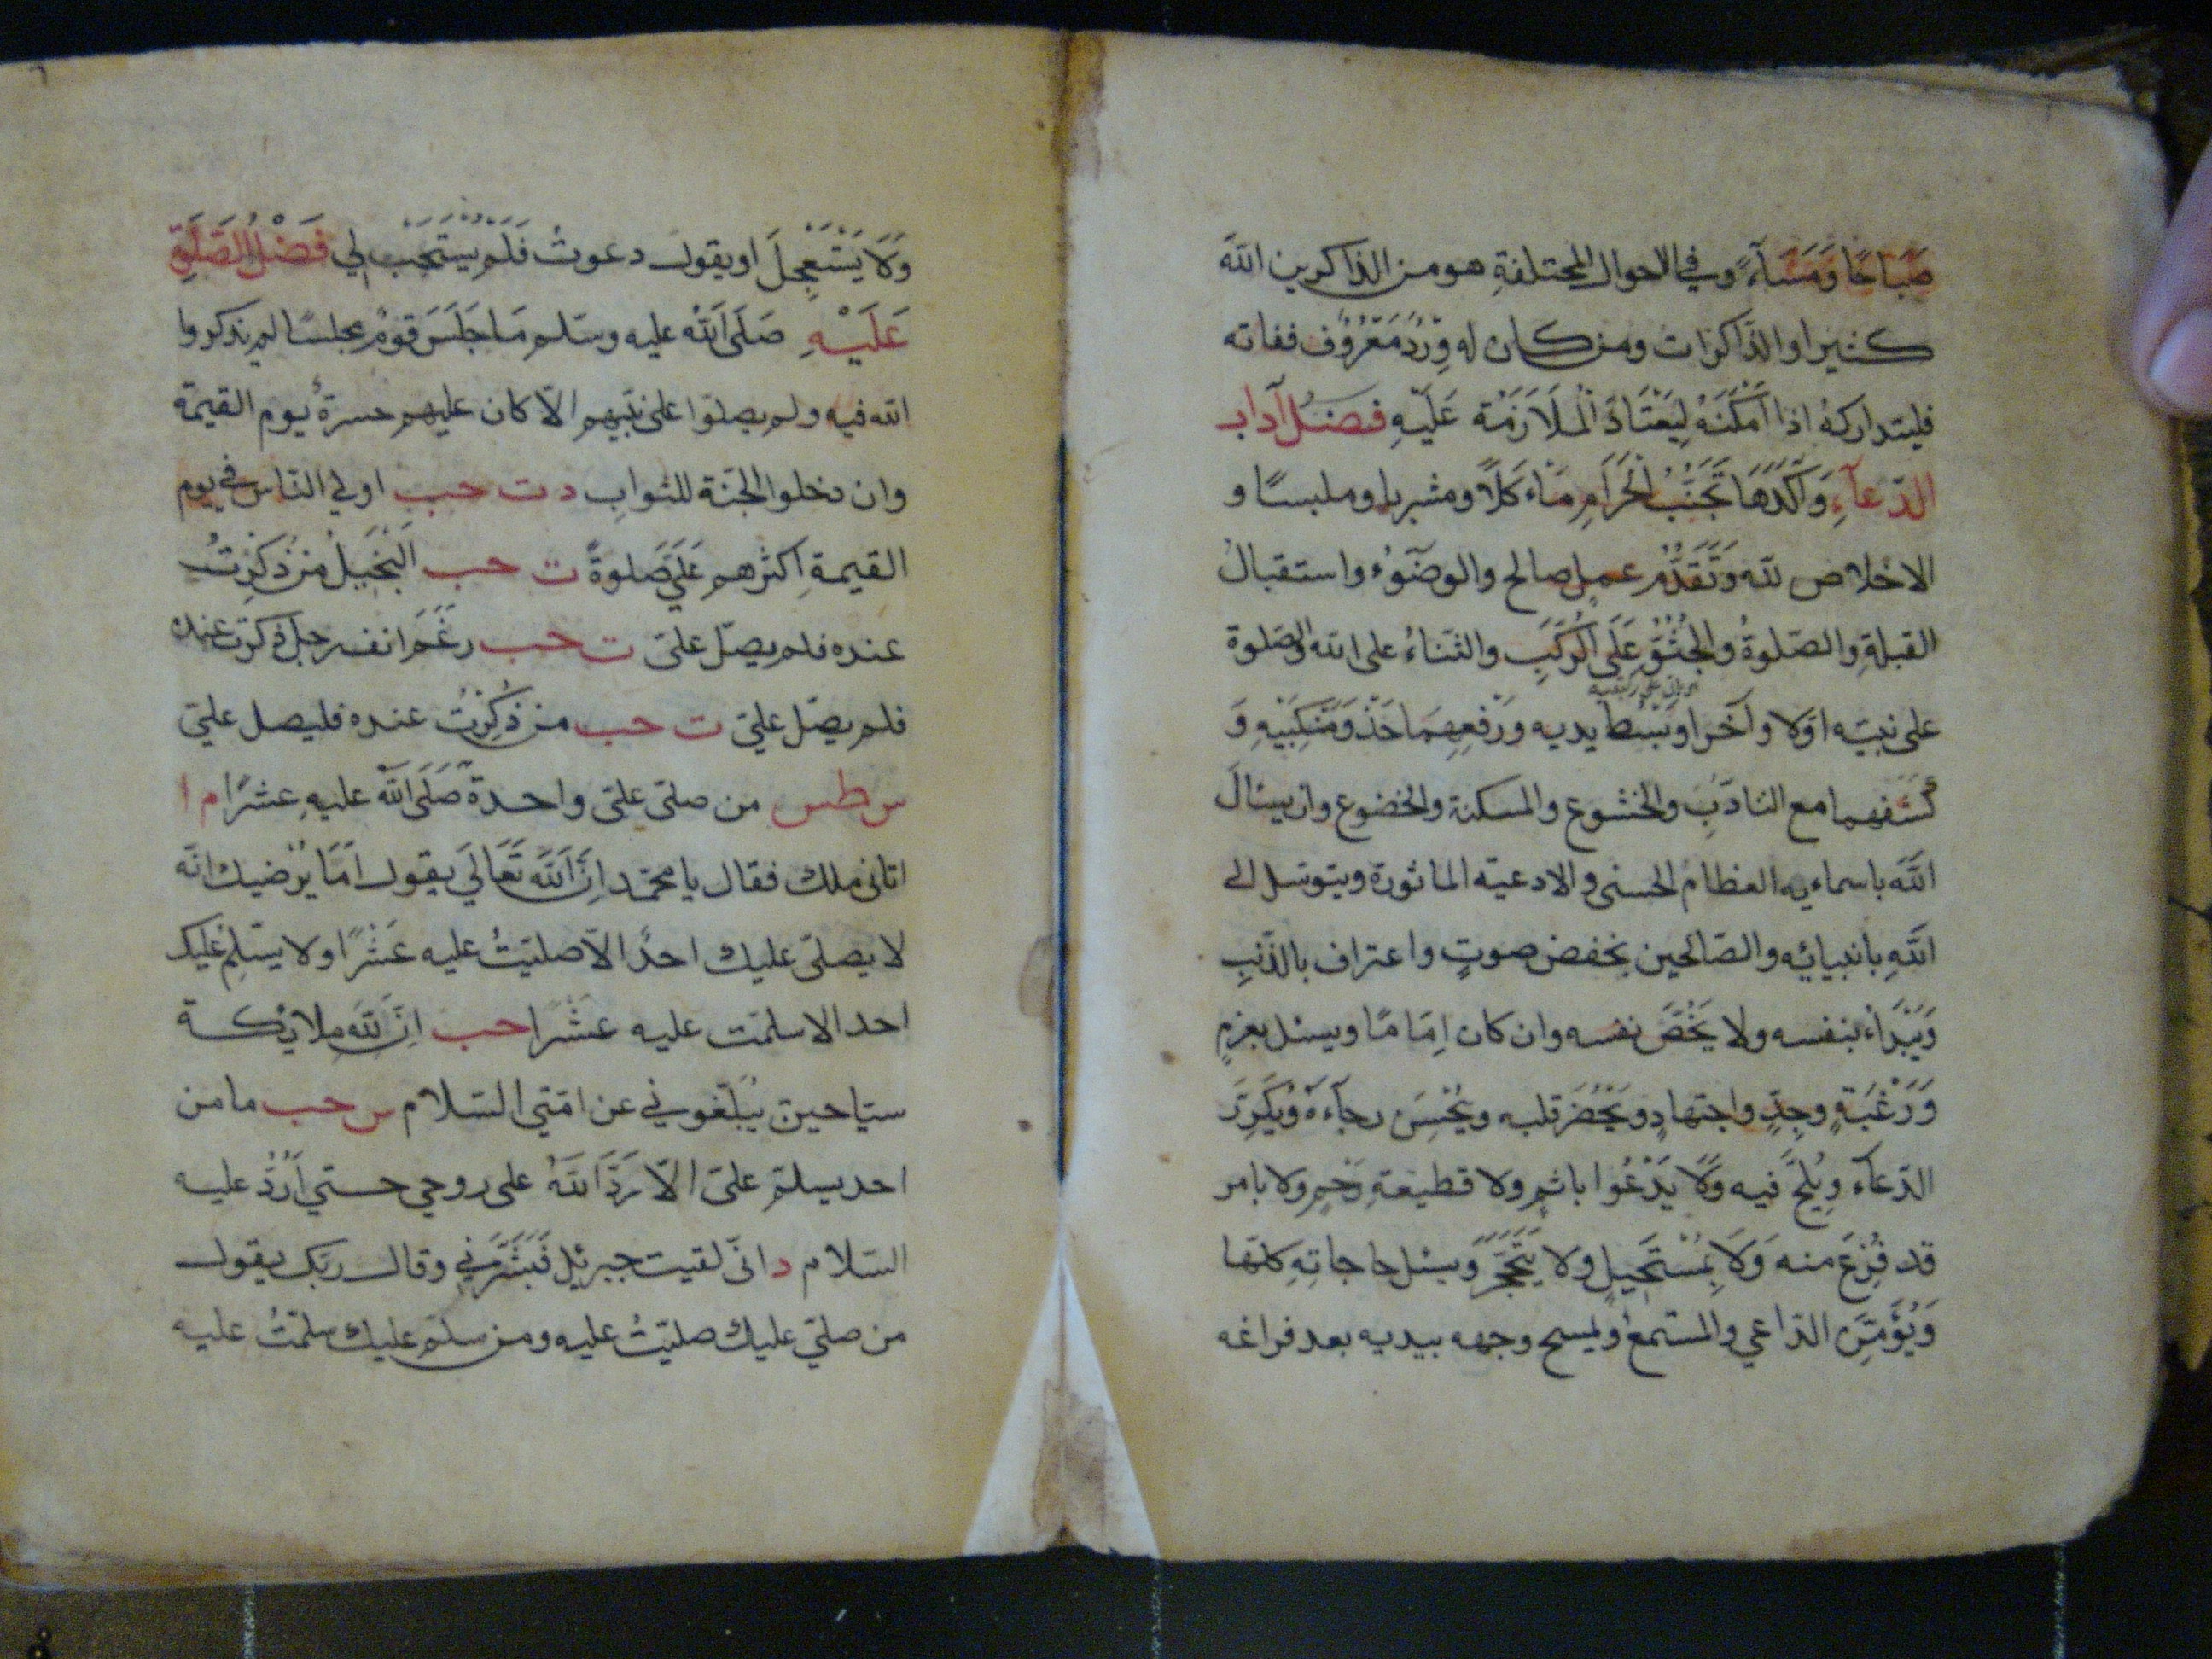 صَبَاحًا وَمَسَآءً وفي الاحوال المختلفةِ هو من الذاكرين اللهَ
كثيرا والذّاكرات ومن كان له وِرْدٌ مَعْرُوف ففاته
فليتداركهُ اذا اَمْكَنَهُ لِيَعْتَادَ الْمُلَازَمَةَ عَلَيْهِ فصل آداب
الدّعآءِ وَآكَدُهَا تَجَنُّبُ الْحَرَامِ مَاءكَلًا ومشربا وملبسًا و
الاخلاص لله وَتَقَدُّمُ عملٍ صالح والوضوُء واستقبالُ
القبلةِ والصّلوةُ والجُثُوُّ عَلَى الرُّكَبِ والثّناءُ على الله والصّلوة
على نبيّه اوّلا وآخرا وبَسْطُ يديه وَرَفْعِهِمَا حَذْوَ مَنْكِبَيْهِ وَ
كَشْفهما مع التادّبِ والخشوع والمسكنة والخضوع وان يسئالَ
اللهَ باسمائِه العظام الحسنى والادعية الماثورة ويتوسّل الى
اللهِ بانبيائِه والصّالحين بخفض صوتٍ واعتراف بالذّنبِ
وَيَبْدَاءُ بنفسه ولا يَخُصَّ نفسه وان كان اِمَامًا ويسئل بعزمٍ
وَرَغْبَةٍ وجِدٍّ واجتهادٍ ويُحْضِرَ قلبه ويُحْسِنَ رجآءَهُ وَيُكَرِّرَ
الدّعآء ويُلِحَّ فيه وَلَا يَدْعُوا باثمٍ ولا قطيعةِ رَحِمٍ ولا بامر
قد فُرِغَ منه وَلَا بِمُسْتَحِيلٍ ولا يَتَحَجَّرَ وَيسئل حاجاتِهِ كلّها
وَيُؤَمِّنَ الدّاعي والمستمعُ ويمسح وجهه بيديه بعد فراغه
وَلَا يَسْتَعْجِلَ او يقول دعوتُ فَلَمْ يُسْتَجَبْ لي فَصْلُ الصَّلَوةِ
عَلَيْهِ صَلَى اللهُ عليه وسَلم مَا جَلَسَ قومٌ مجلسًا لم يذكروا
الله فيه ولم يصلّوا على نبيّهم الّا كان عليهم حسرةً يوم القيمة
وان دخلوا الجنّة للثوابِ د ت حب اولي النّاس في يوم
القيمةِ اكثرهم عَلَيَّ صَلوةً ت حب اَلْبَخِيلُ من ذُكِرْتُ
عنده فلم يصلّ علىّ ت حب رَغَمَ انف رجل ذكرت عنده
فلم يصلّ علىّ ت حب من ذُكِرْتُ عنده فليصل علىّ
س طس من صلىّ علىّ واحدةً صَلَى اللهُ عليهِ عشرًا م ا
اتانى ملك فقال يا محمّد اِنَّ اللهَ تَعَالَى يقول اَمَا يُرْضيك انّه
لا يصلىّ عليك احدٌ الّا صليّتُ عليه عَشْرًا ولا يسّلم عليك
احد الا سلمّت عليه عشْرًا حب اِنَّ لله ملائكة
سيّاحين يُبلّغوني عن امّتي السّلام س حب ما من
احد يسلّم علىّ الّا رَدَّ اللهُ على روحي حتي اَرُدَّ عليه
السّلام د انّى لقيت جبرئيل فَبَشَّرَنِي وقال ربّك يقول
من صلىّ عليك صليّتُ عليه ومن سلّم عليك سلمّتُ عليه